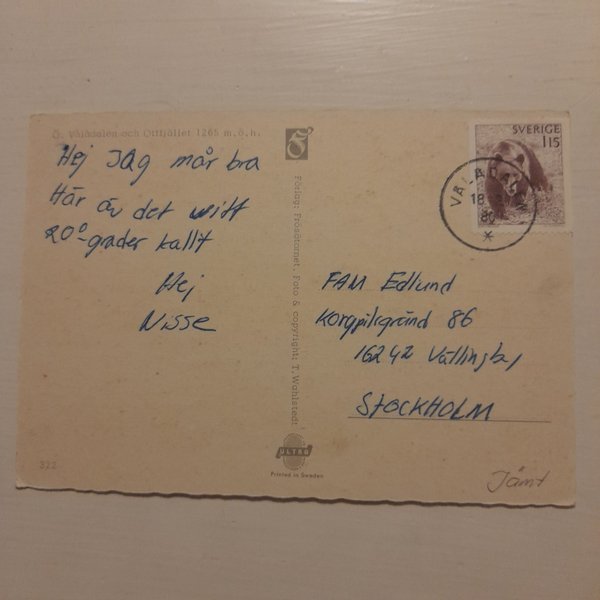 Ö. Vålådalen och Ottfjället 1265 m.ö.h.
Hej JAg mår bra
Här äv det witt
20°-grader kallt
Hej
Nisse
Förlag: Frösötornet. Foto & copyright: T. Wahlstedt
SVERIGE
115
VÅLÅDALEN
18
80
FAM Edlund
Korgpilsgränd 86
16242 Vällingby
STOCKHOLM
ULTRA
Printed in Sweden
312
Jämt